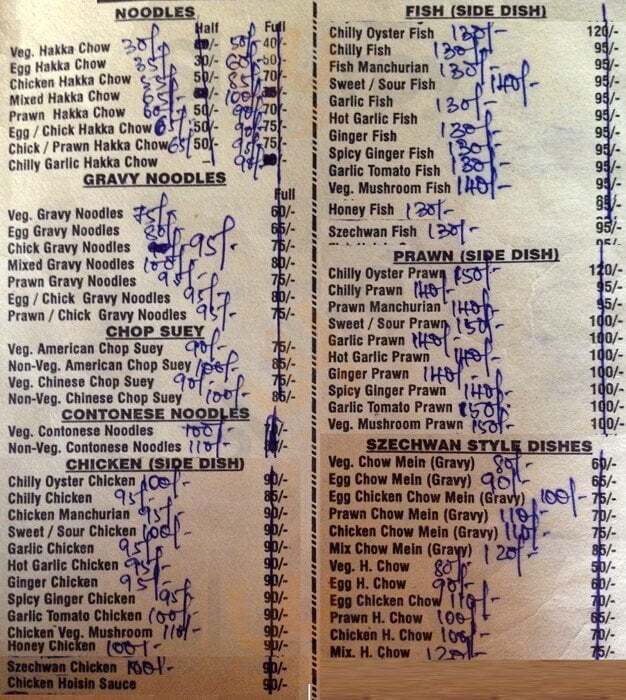 NOODLES
Half Full
Veg. Hakka Chow 30/- 50/- 40/-
Egg Hakka Chow 30/- 60/-
Chicken Hakka Chow 50/- 70/-
Mixed Hakka Chow 65/- 100/-
Prawn Hakka Chow 50/- 90/- 70/-
Egg / Chick Hakka Chow 50/- 75/-
Chick / Prawn Hakka Chow 65/- 50/- 75/-
Chilly Garlic Hakka Chow - 90/-
GRAVY NOODLES
Full
Veg. Gravy Noodles 75/- 60/-
Egg Gravy Noodles 80/- 65/-
Chick Gravy Noodles 95/- 75/-
Mixed Gravy Noodles 100/- 80/-
Prawn Gravy Noodles 95/- 75/-
Egg / Chick Gravy Noodles 95/- 80/-
Prawn / Chick Gravy Noodles 95/- 75/-
CHOP SUEY
Veg. American Chop Suey 90/- 75/-
Non-Veg. American Chop Suey 100/- 85/-
Veg. Chinese Chop Suey 90/- 75/-
Non-Veg. Chinese Chop Suey 100/- 85/-
CONTONESE NOODLES
Veg. Contonese Noodles 100/-
Non-Veg. Contonese Noodles 110/-
CHICKEN (SIDE DISH)
Chilly Oyster Chicken 100/- 90/-
Chilly Chicken 95/- 85/-
Chicken Manchurian 95/- 90/-
Sweet / Sour Chicken 100/- 90/-
Garlic Chicken 95/- 90/-
Hot Garlic Chicken 95/- 90/-
Ginger Chicken 95/- 90/-
Spicy Ginger Chicken 95/- 90/-
Garlic Tomato Chicken 100/- 90/-
Chicken Veg. Mushroom 110/- 90/-
Honey Chicken 100/- 90/-
Szechwan Chicken 100/- 90/-
Chicken Hoisin Sauce 90/-
FISH (SIDE DISH)
Chilly Oyster Fish 130/- 120/-
Chilly Fish 130/- 95/-
Fish Manchurian 130/- 95/-
Sweet / Sour Fish 140/- 95/-
Garlic Fish 130/- 95/-
Hot Garlic Fish 95/-
Ginger Fish 130/- 95/-
Spicy Ginger Fish 130/- 95/-
Garlic Tomato Fish 130/- 95/-
Veg. Mushroom Fish 140/- 95/-
Honey Fish 130/- 85/-
Szechwan Fish 130/- 95/-
PRAWN (SIDE DISH)
Chilly Oyster Prawn 150/- 120/-
Chilly Prawn 140/- 95/-
Prawn Manchurian 140/- 95/-
Sweet / Sour Prawn 150/- 100/-
Garlic Prawn 140/- 100/-
Hot Garlic Prawn 140/- 100/-
Ginger Prawn 140/- 100/-
Spicy Ginger Prawn 140/- 100/-
Garlic Tomato Prawn 150/- 100/-
Veg. Mushroom Prawn 150/- 100/-
SZECHWAN STYLE DISHES
Veg. Chow Mein (Gravy) 80/- 60/-
Egg Chow Mein (Gravy) 90/- 65/-
Egg Chicken Chow Mein (Gravy) 100/- 75/-
Prawn Chow Mein (Gravy) 110/- 70/-
Chicken Chow Mein (Gravy) 110/- 75/-
Mix Chow Mein (Gravy) 120/- 85/-
Veg. H. Chow 80/- 50/-
Egg H. Chow 90/- 60/-
Egg Chicken Chow 110/- 70/-
Prawn H. Chow 100/- 65/-
Chicken H. Chow 100/- 70/-
Mix. H. Chow 120/- 75/-